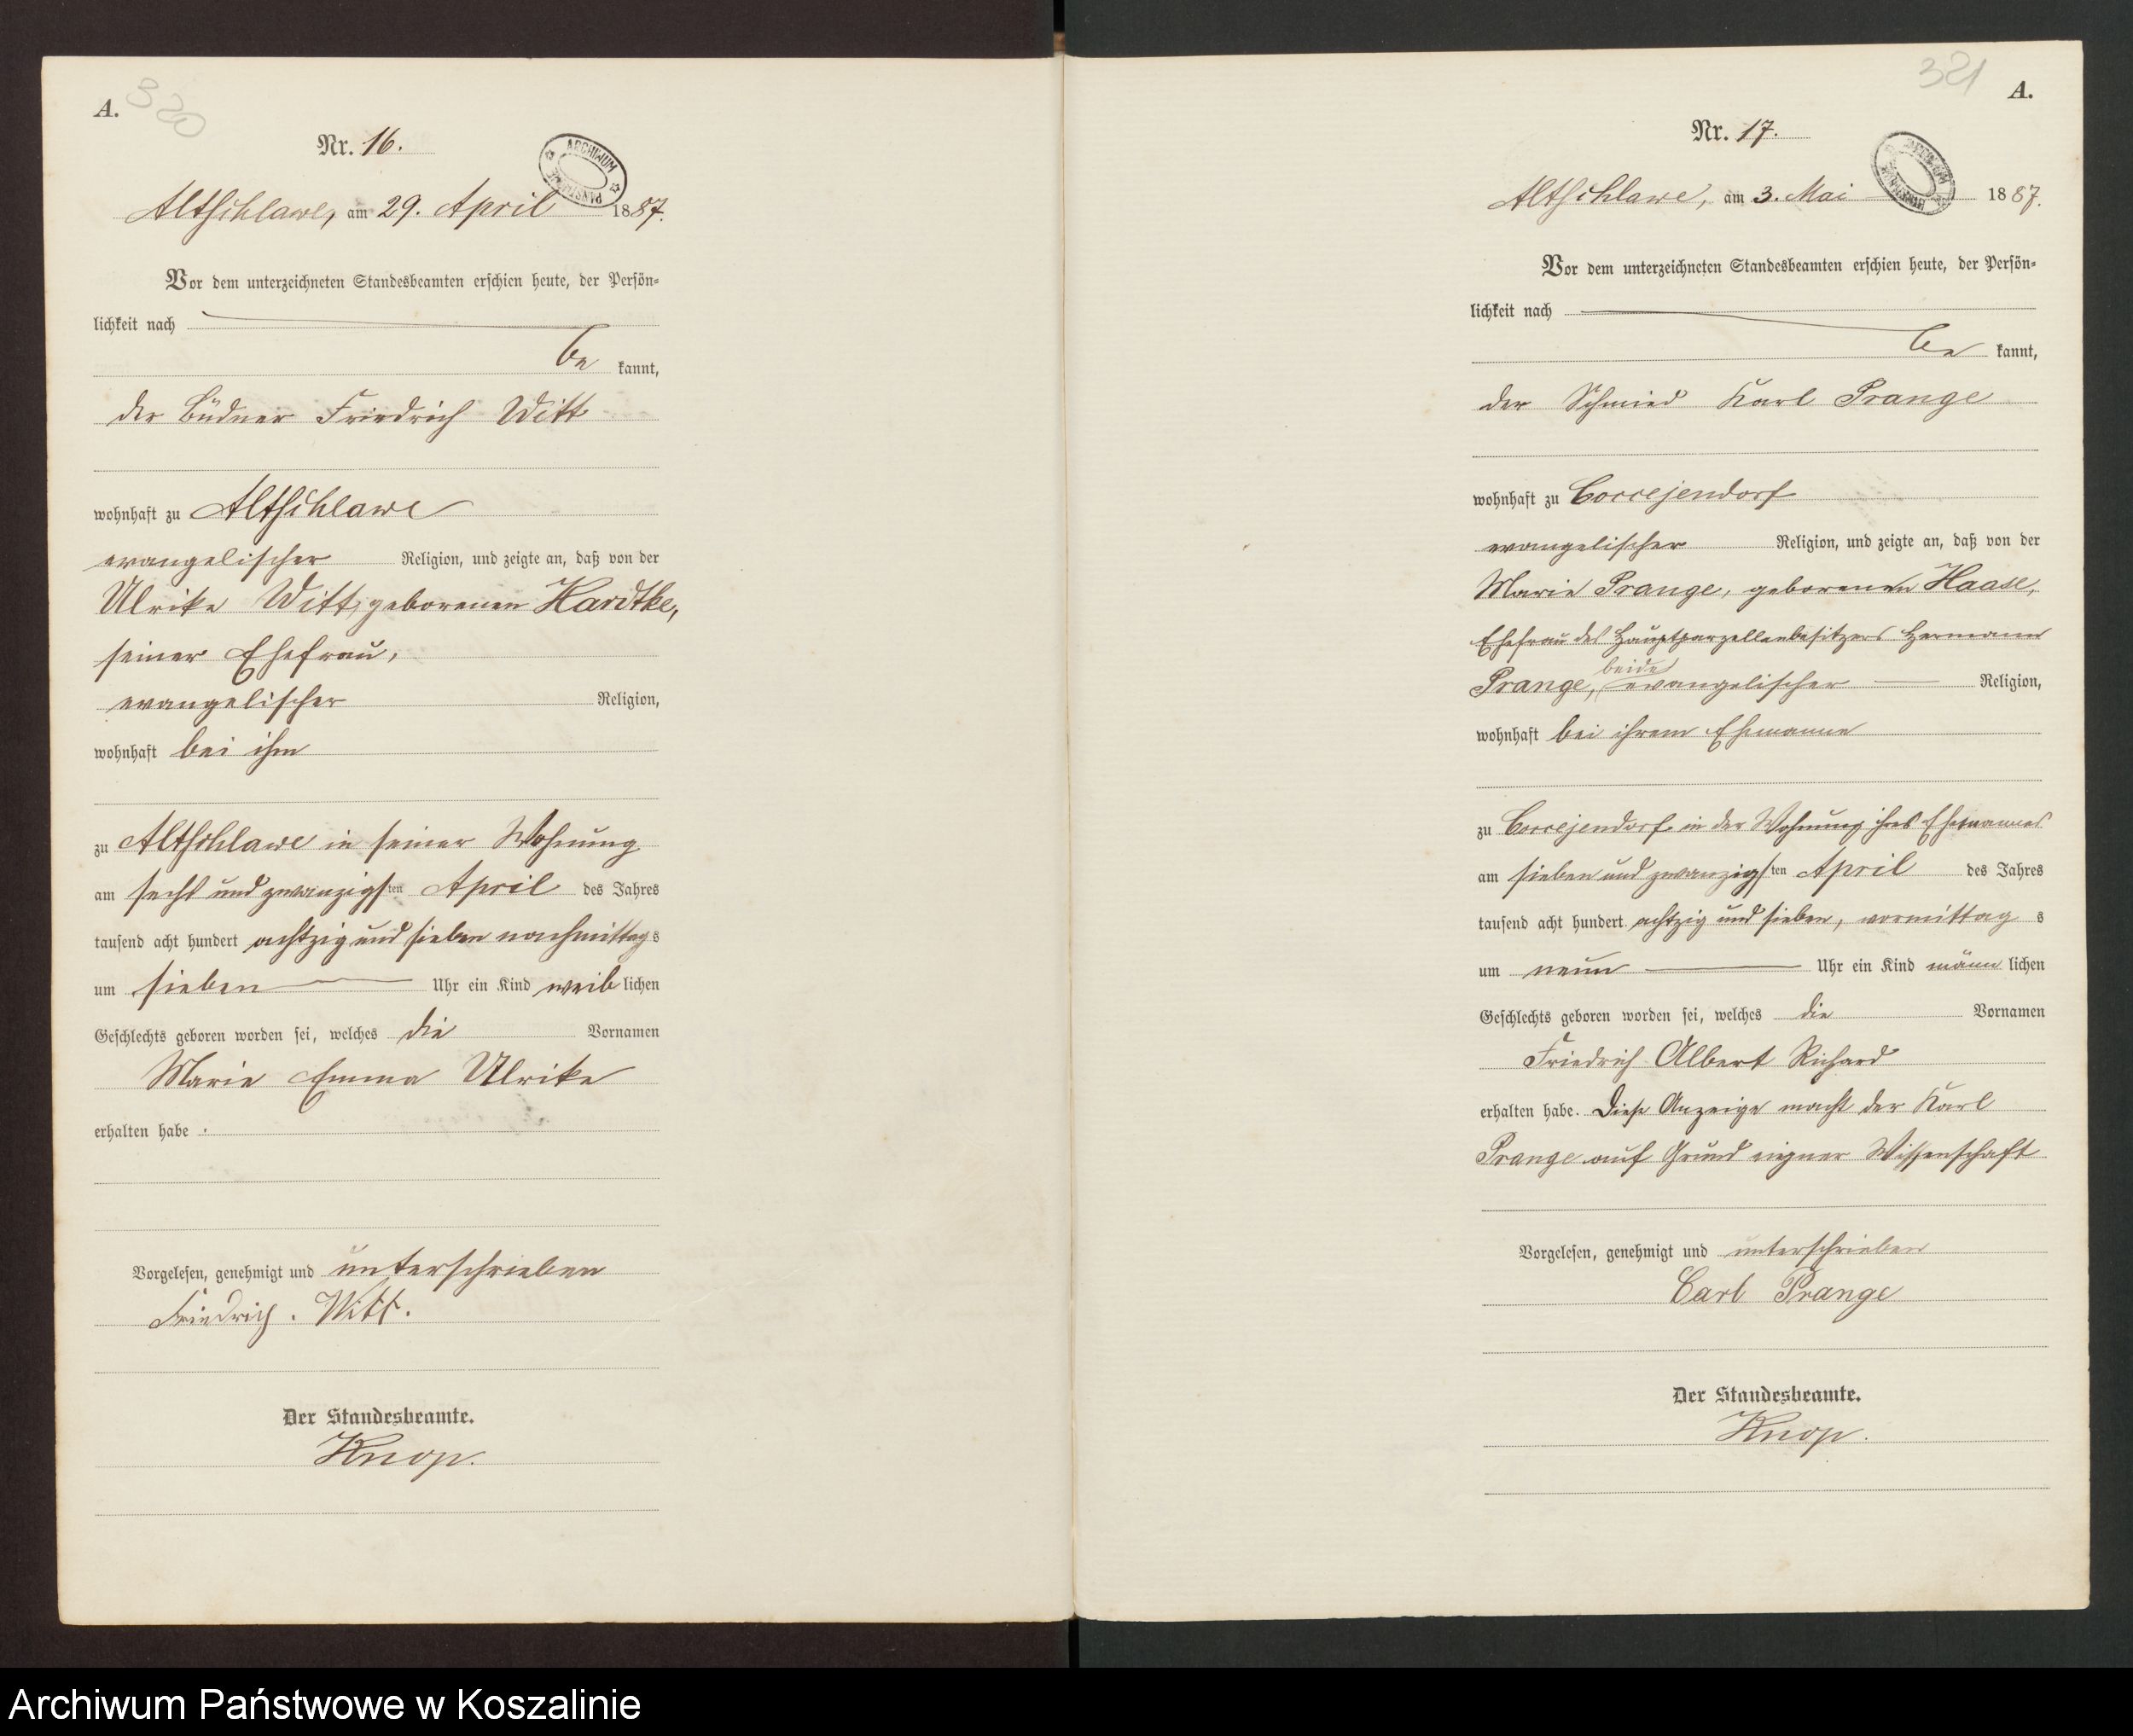 A.
320
Nr. 16.
ARCHIWUM PAŃSTWOWE
Altschlawe, am 29. April 1887.
Vor dem unterzeichneten Standesbeamten erschien heute, der Persön=
lichkeit nach
be kannt,
der Büdner Friedrich Witt
wohnhaft zu Altschlawe
evangelischer Religion, und zeigte an, daß von der
Ulrike Witt, geborenen Hardtke,
seiner Ehefrau,
evangelischer Religion,
wohnhaft bei ihm
zu Altschlawe in seiner Wohnung
am sechs und zwanzigsten April des Jahres
tausend acht hundert achtzig und sieben nachmittags
um sieben Uhr ein Kind weiblichen
Geschlechts geboren worden sei, welches die Vornamen
Marie Emma Ulrike
erhalten habe.
Vorgelesen, genehmigt und unterschrieben
Friedrich. Witt.
Der Standesbeamte.
Knop.
321
A.
Nr. 17.
Altschlawe, am 3. Mai 1887.
Vor dem unterzeichneten Standesbeamten erschien heute, der Persön=
lichkeit nach
be kannt,
der Schmied Karl Prange
wohnhaft zu Coccejendorf
evangelischer Religion, und zeigte an, daß von der
Marie Prange, geborenen Haase,
Ehefrau des Hauptparzellenbesitzers Hermann
beide
Prange, evangelischer Religion,
wohnhaft bei ihrem Ehemanne
zu Coccejendorf in der Wohnung ihres Ehemannes
am sieben und zwanzigsten April des Jahres
tausend acht hundert achtzig und sieben, vormittags
um neun Uhr ein Kind männlichen
Geschlechts geboren worden sei, welches die Vornamen
Friedrich Albert Richard
erhalten habe. Diese Anzeige macht der Karl
Prange auf Grund eigner Wissenschaft
Vorgelesen, genehmigt und unterschrieben
Carl Prange
Der Standesbeamte.
Knop.
Archiwum Państwowe w Koszalinie